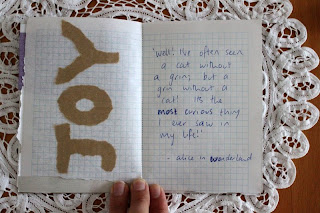 JOY
'well! I've often seen
a cat without
a grin; but a
grin without a
cat! It's the
most curious thing
I ever saw in
my life!'
- alice in wonderland